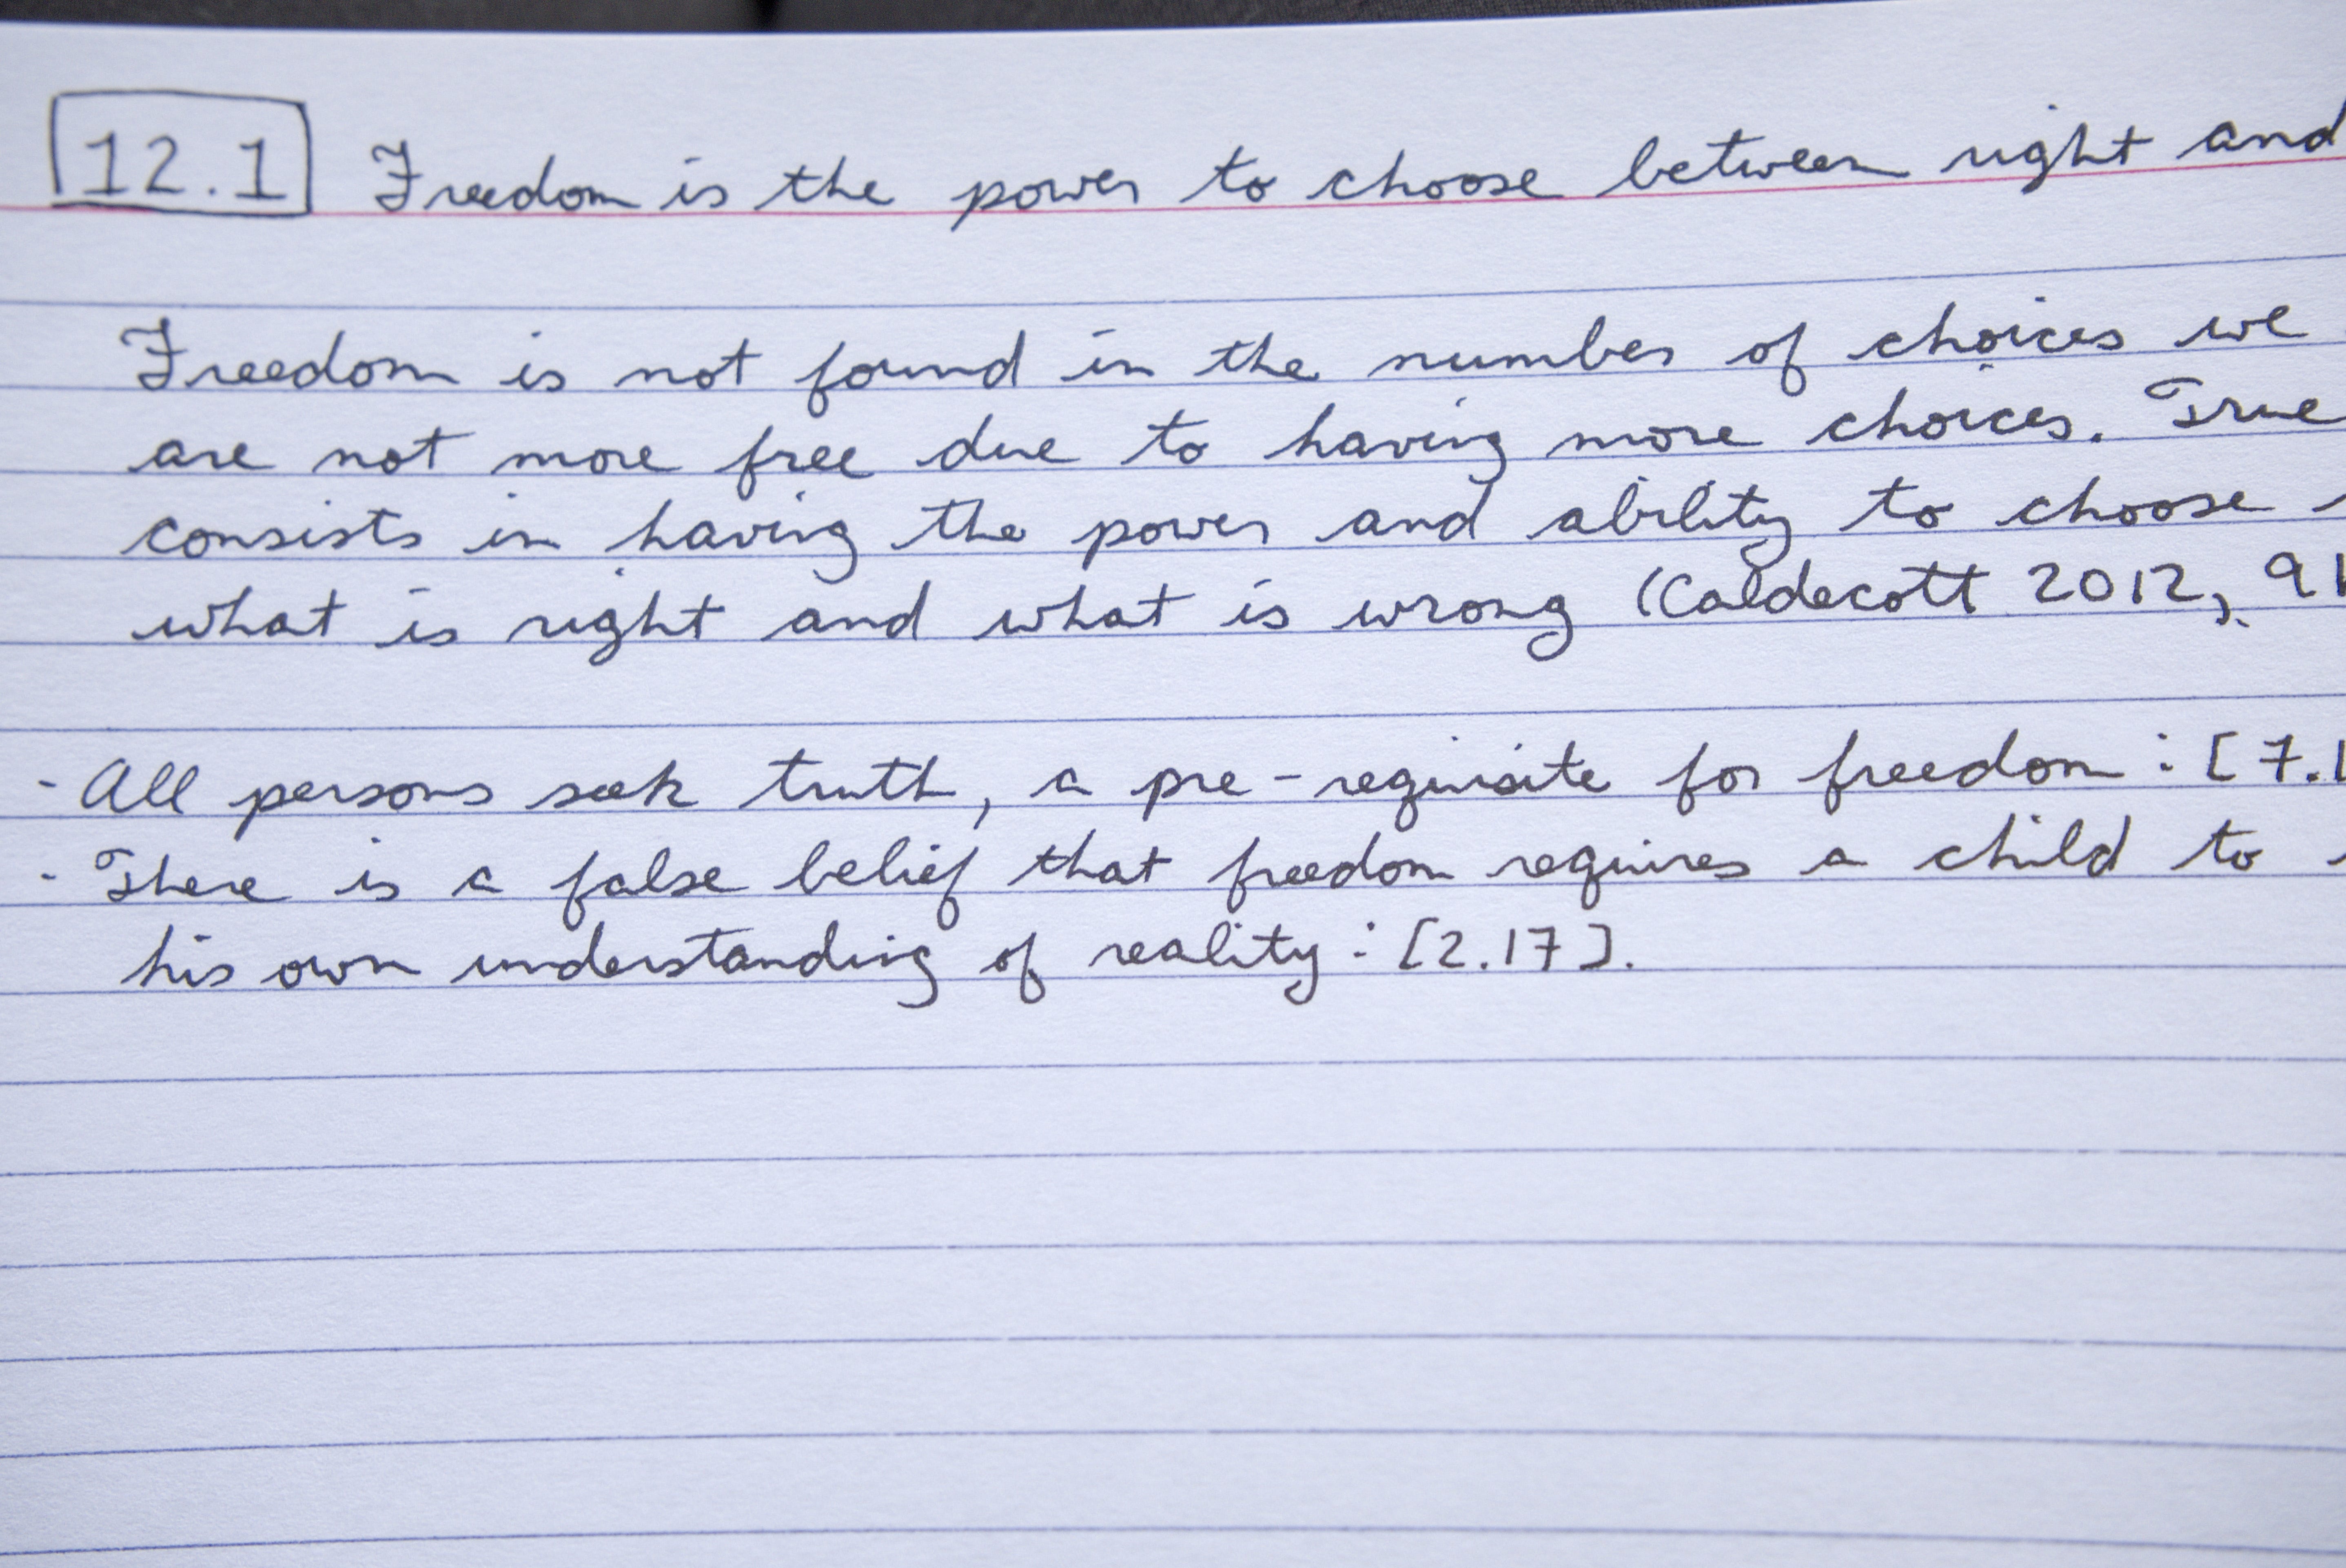 12.1 Freedom is the power to choose between right and
Freedom is not found in the number of choices we
are not more free due to having more choices. True
consists in having the power and ability to choose
what is right and what is wrong (Caldecott 2012, 91
- All persons seek truth, a pre-requisite for freedom: [7.1
- There is a false belief that freedom requires a child to
his own understanding of reality: [2.17].